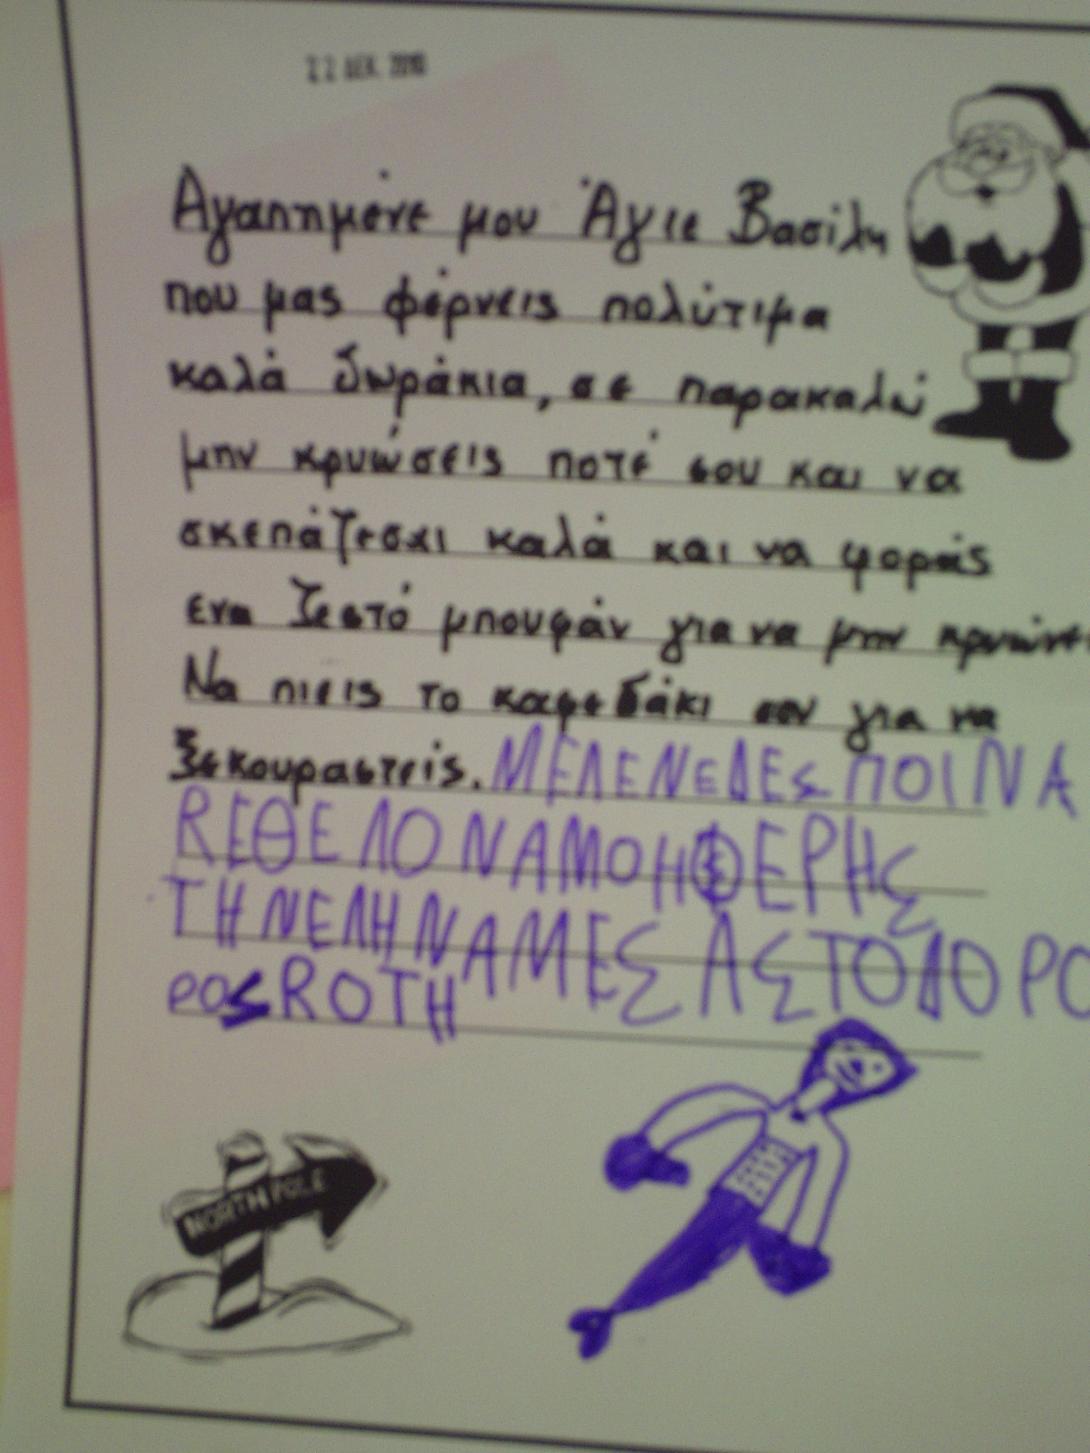 22 ΔΕΚ. 2010
Αγαπημένε μου Άγιε Βασίλη
που μας φέρνεις πολύτιμα
καλά δωράκια, σε παρακαλώ
μην κρυώσεις ποτέ σου και να
σκεπάζεσαι καλά και να φοράς
ενα ζεστό μπουφάν για να μην κρυώνει
Να πιείς το καφεδάκι σου για να
ξεκουραστείς. ΜΕΛΕΝΕ ΔΕΣΠΟΙΝΑ
RΕΘΕΛΟ ΝΑ ΜΟΗ ΦΕΡΗΣ
ΤΗΝ ΕΛΗΝΑ ΜΕΣ ΑΣΤΟ ΔΟΡΟ
ΡΟΣ ROTH
NORTH POLE